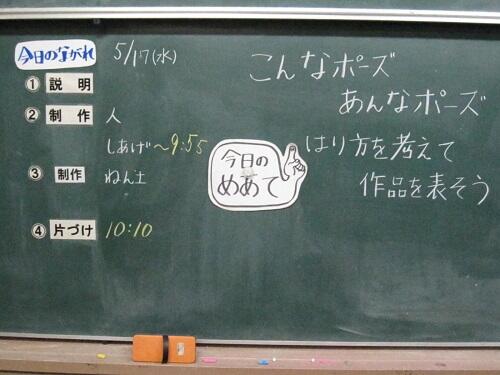 今日のながれ
5/17(水)
① 説明
② 制作 人
しあげ〜9:55
③ 制作 ねん土
④ 片づけ 10:10
こんなポーズ
あんなポーズ
今日の
めあて
はり方を考えて
作品を表そう